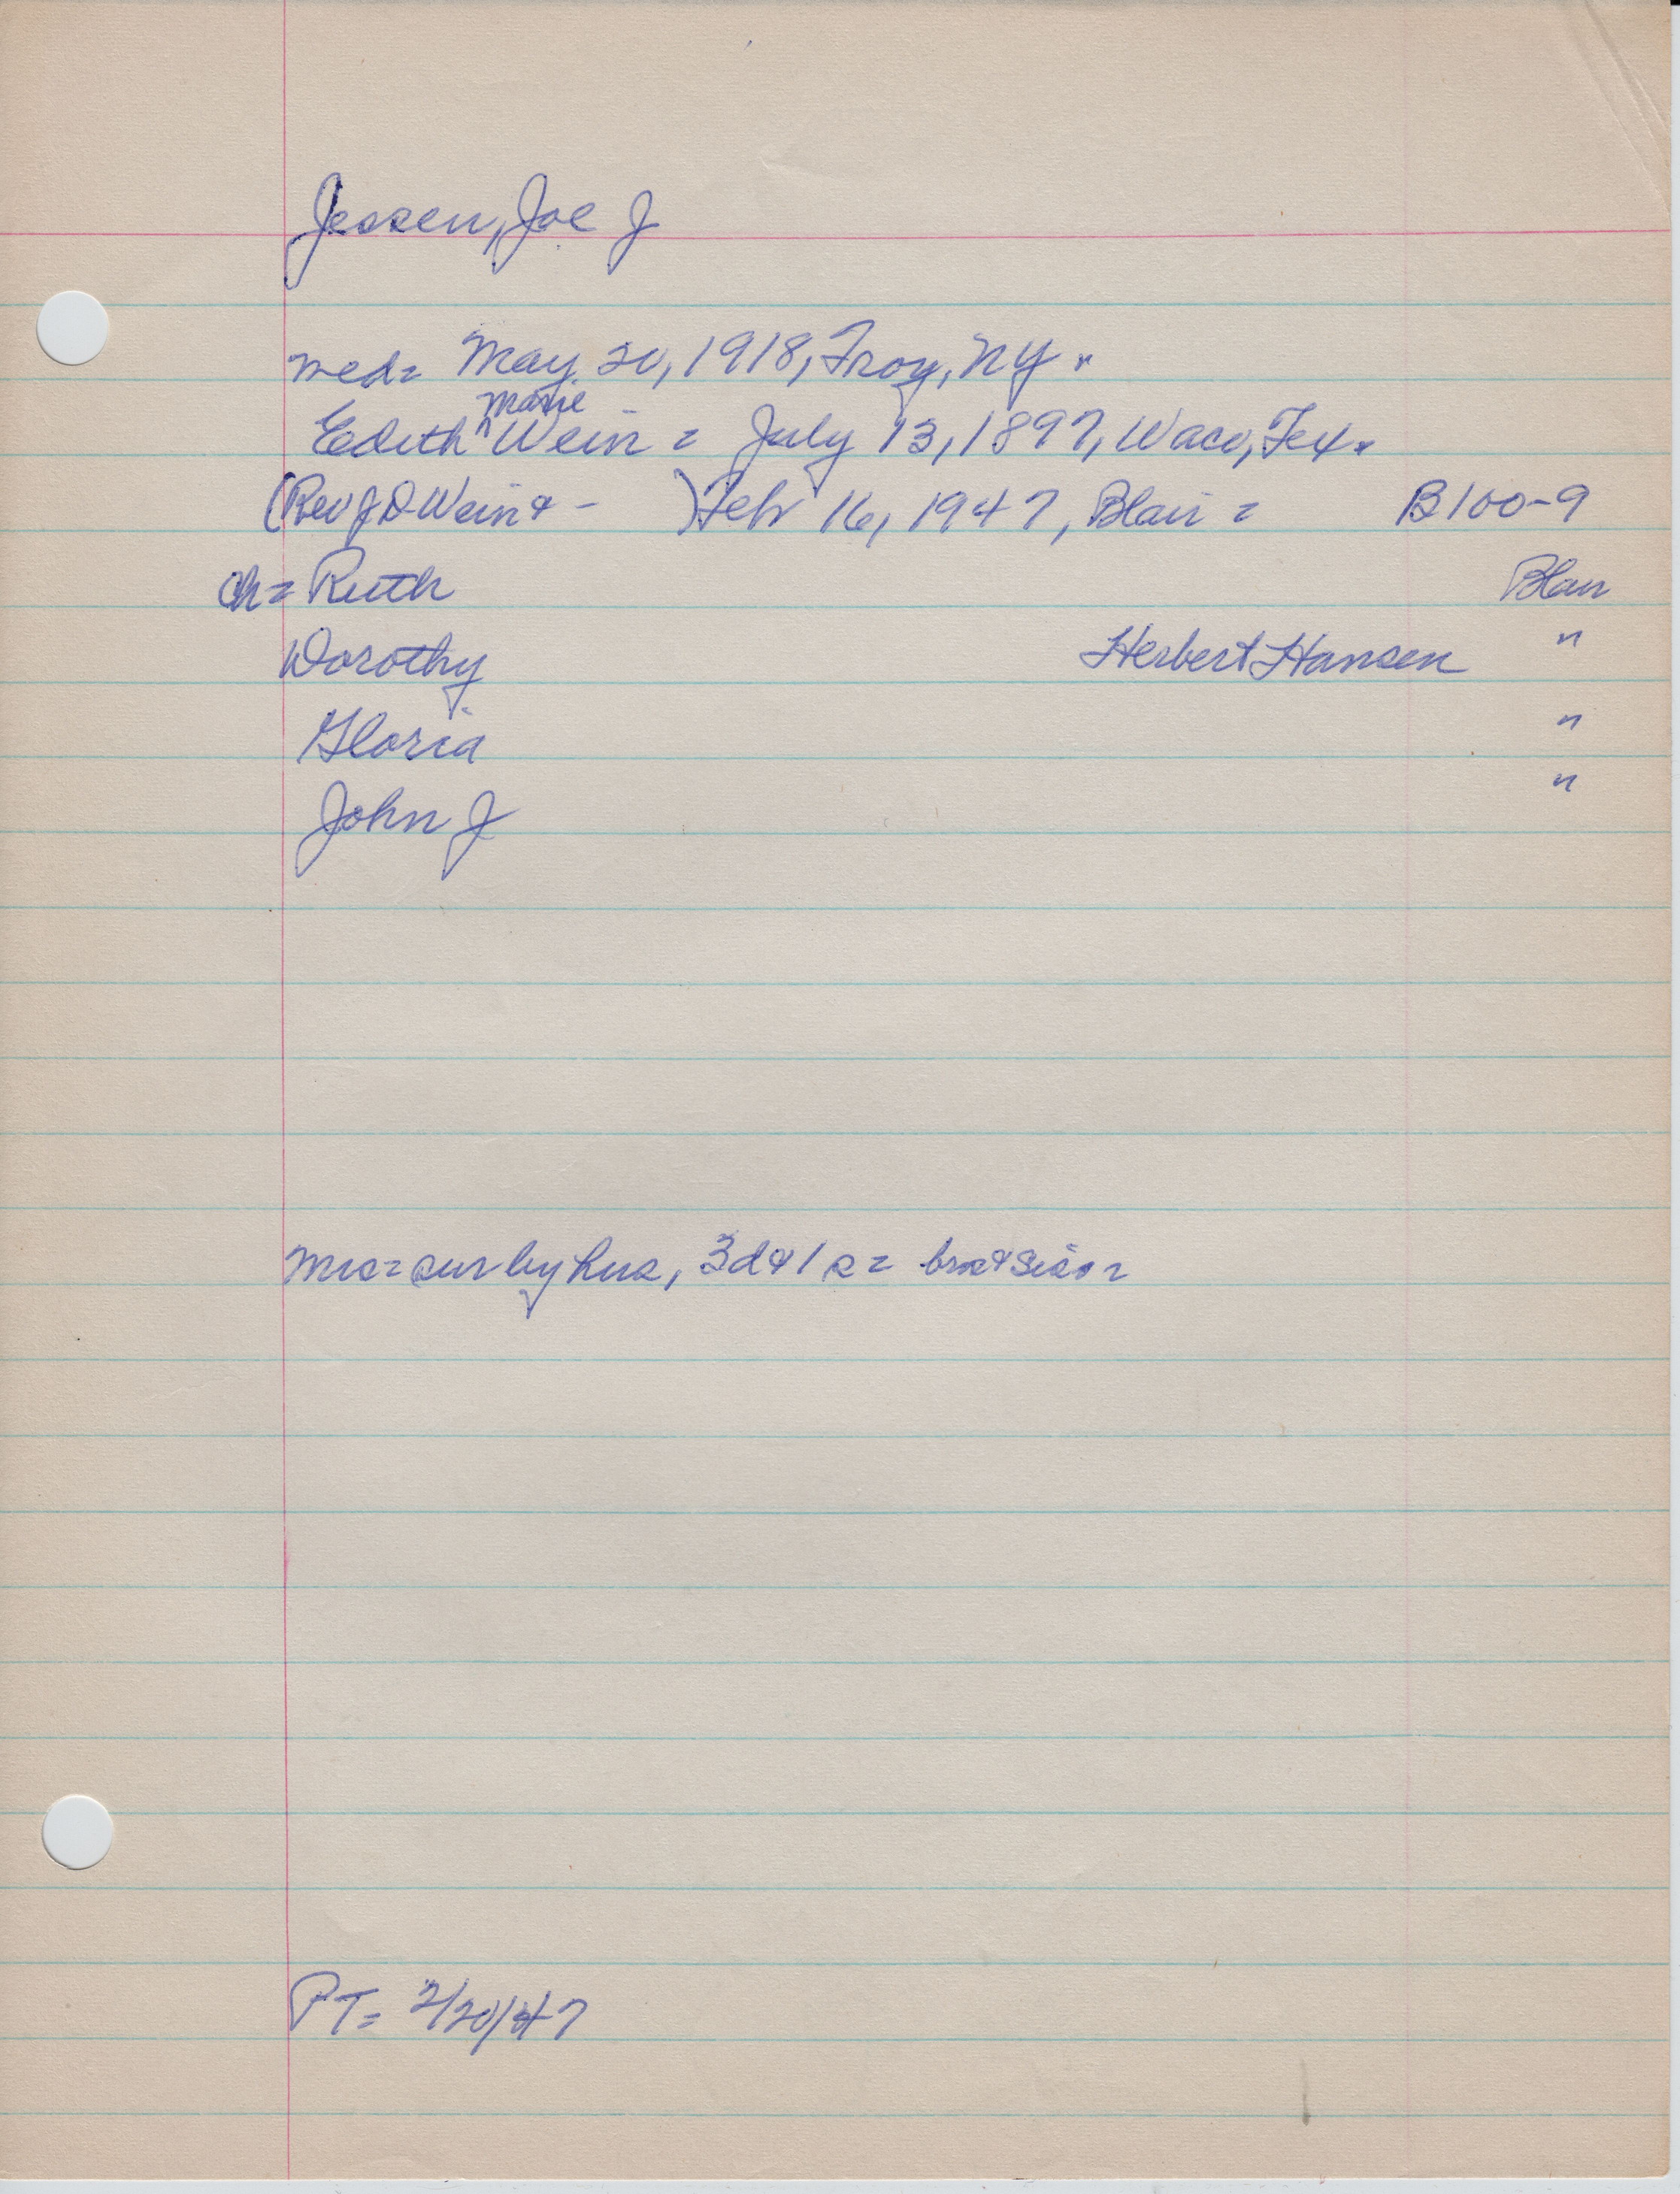 Jessen, Joe J
wed= May 20, 1918, Troy, NY =
Marie
Edith ^ Wein = July 13, 1897, Waco, Tex =
(Rev J D Wein & - ) Feb 16, 1947, Blair = B100-9
ch= Ruth Blair
Dorothy Herbert Hansen "
Gloria "
John J "
Mrs= sur by hus, 3d & 1s = bros & siss =
PT= 2/20/47